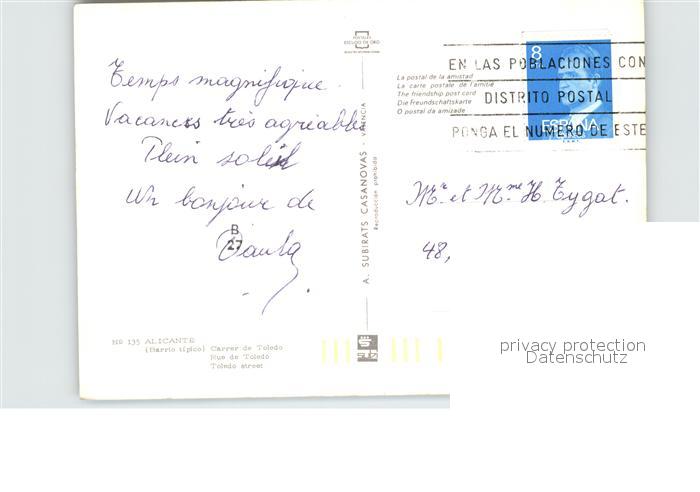 Temps magnifique.
Vacances très agréables
Plein soleil
Un bonjour de
Paula
B
27
Nº 135 ALICANTE
(Barrio típico) Carrer de Toledo
Rue de Toledo
Toledo street
POSTALES
ESCUDO DE ORO
A. SUBIRATS CASANOVAS - VALENCIA
Reproducción prohibida
La postal de la amistad
La carte postale de l'amitié
The friendship post card
Die Freundschaftskarte
O postal da amizade
8
ESPAÑA
EN LAS POBLACIONES CON
DISTRITO POSTAL
PONGA EL NUMERO DE ESTE
Mr. et Mme H. Tygat.
48,
privacy protection
Datenschutz